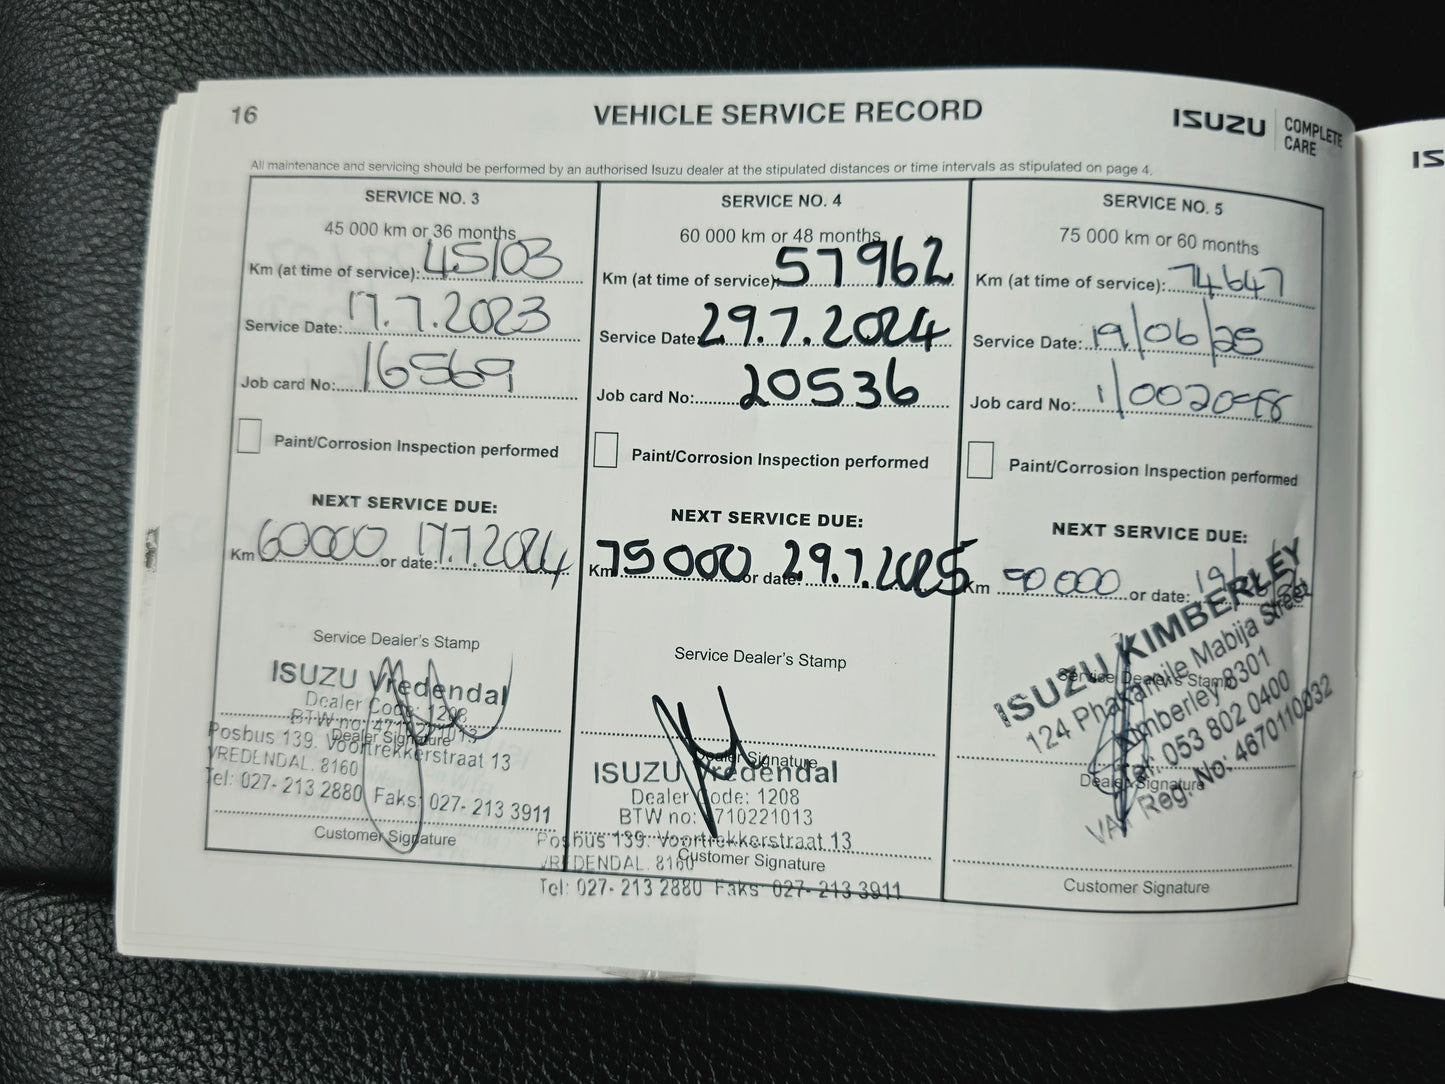 16
VEHICLE SERVICE RECORD
ISUZU COMPLETE CARE
IS
All maintenance and servicing should be performed by an authorised Isuzu dealer at the stipulated distances or time intervals as stipulated on page 4.
SERVICE NO. 3
45 000 km or 36 months
Km (at time of service): 45103
Service Date: 17.7.2023
Job card No: 16569
Paint/Corrosion Inspection performed
NEXT SERVICE DUE:
Km 60000 or date: 17.7.2024
Service Dealer's Stamp
ISUZU Vredendal
Dealer Code: 1208
BTW no:
Dealer Signature
Posbus 139. Voortrekkerstraat 13
VREDENDAL. 8160
Tel: 027- 213 2880 Faks: 027- 213 3911
Customer Signature
SERVICE NO. 4
60 000 km or 48 months
Km (at time of service): 57962
Service Date: 29.7.2024
Job card No: 20536
Paint/Corrosion Inspection performed
NEXT SERVICE DUE:
Km 75000 or date: 29.7.2025
Service Dealer's Stamp
Dealer Signature
ISUZU Vredendal
Dealer Code: 1208
BTW no: 4710221013
Posbus 139. Voortrekkerstraat 13
VREDENDAL. 8160
Customer Signature
Tel: 027- 213 2880 Faks 027- 213 3911
SERVICE NO. 5
75 000 km or 60 months
Km (at time of service): 74647
Service Date: 19/06/25
Job card No:
Paint/Corrosion Inspection performed
NEXT SERVICE DUE:
Km 90000 or date: 19/
ISUZU KIMBERLEY
124 Phakamile Mabija Street
Service Dealer's Stamp
Kimberley 8301
Tel: 053 802 0400
VAT Reg. No: 4670110032
Dealer Signature
Customer Signature